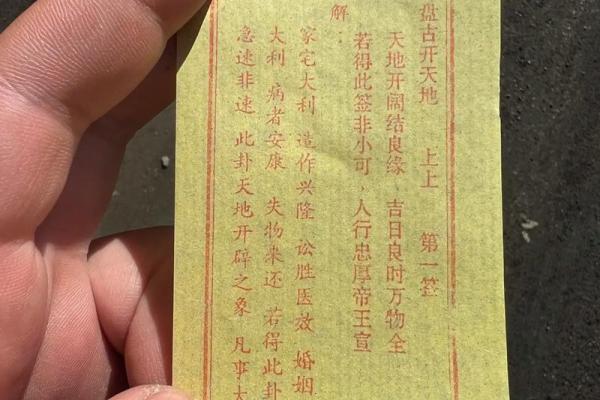 盘古开天地 上上 第一签
天地开阔结良缘 吉日良时万物全
若得此签非小可,人行忠厚帝王宣
解:
家宅大利 造作兴隆 讼胜医效 婚姻
大利 病者安康 失物来还 若得此卦
急速非速 此卦天地开辟之象 凡事大